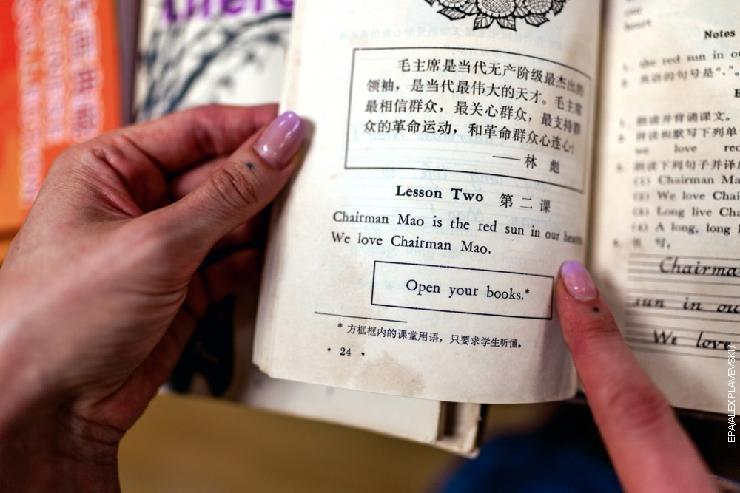 毛主席是当代无产阶级最杰出的
领袖，是当代最伟大的天才。毛主席
最相信群众，最关心群众，最支持群
众的革命运动，和革命群众心连心！
——林彪
Lesson Two 第二课
Chairman Mao is the red sun in our hearts.
We love Chairman Mao.
Open your books.*
* 方框框内的课堂用语，只要求学生听懂。
· 24 ·
Notes
she red sun in ou
英语的句号是“.”。
朗读并背诵课文。
拼读和默写下列单
we love red
朗读下列句子并译成
(1) Chairman Ma
(2) We love Chai
(3) Long live Cha
(4) A long, long
Chairma
sun in ou
We love
EPA/ALEX PLAVEVSKI/